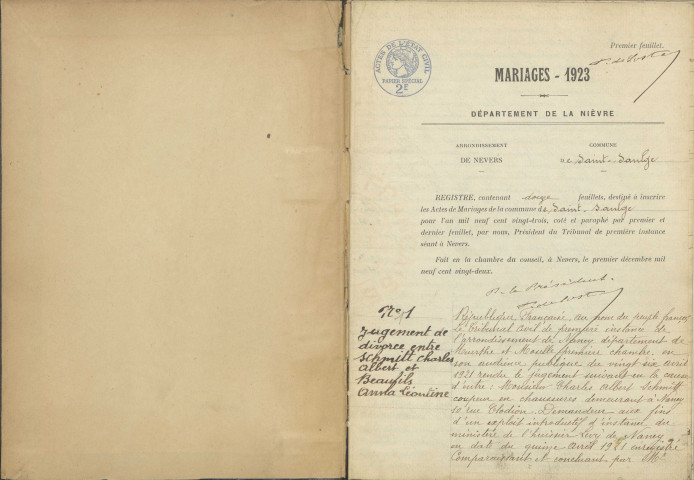 Premier feuillet.
ACTES DE L'ÉTAT CIVIL
PAPIER SPÉCIAL
2F
MARIAGES - 1923
DÉPARTEMENT DE LA NIÈVRE
ARRONDISSEMENT
DE NEVERS
COMMUNE
de Saint-Saulge
REGISTRE, contenant feuillets, destiné à inscrire
les Actes de Mariages de la commune de Saint-Saulge
pour l'an mil neuf cent vingt-trois, coté et paraphé par premier et
dernier feuillet, par nous, Président du Tribunal de première instance
séant à Nevers.
Fait en la chambre du conseil, à Nevers, le premier décembre mil
neuf cent vingt-deux.
P. le Président.
No 1
Jugement de
divorce entre
Schmitt Charles
Albert et
Beaufils
Anna Léontine
République Française au nom du peuple français
Le Tribunal civil de première instance de
l'arrondissement de Nancy département de
Meurthe et Moselle première chambre, en
son audience publique du vingt six avril
1921 rendu le jugement suivant en la cause
d'entre: Monsieur Charles Albert Schmitt
coupeur en chaussures demeurant à Nancy
rue Clodion. Demandeur aux fins
d'un exploit introductif d'instance du
ministère de l'huissier Lévy de Nancy
en date du quinze avril 1921 enregistré
Comparaissant et concluant par Me